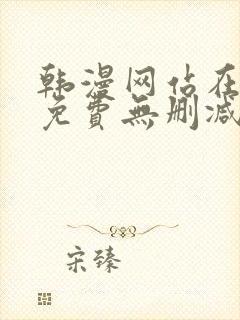 韩漫网站在
免費無删减
宋臻